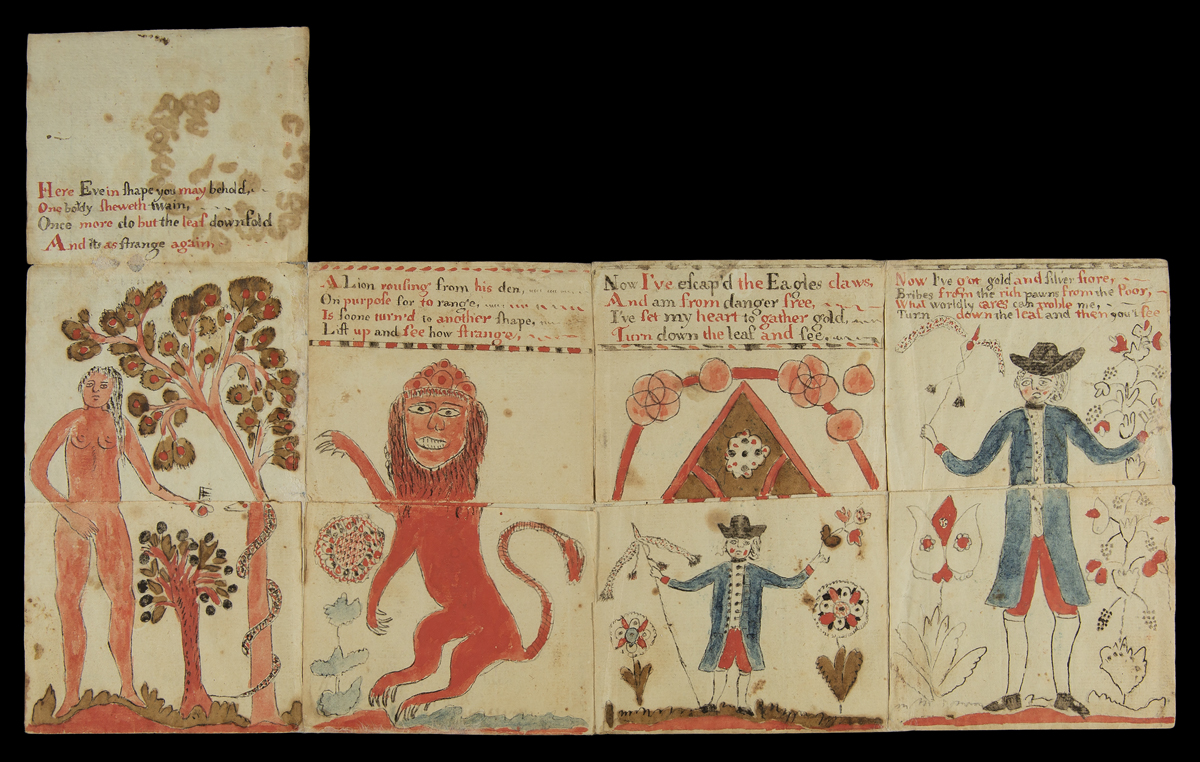 Here Eve in shape you may behold,
One boldy sheweth twain,
Once more do but the leaf downfold
And its as strange again,
A Lion rousing from his den,
On purpose for to range,
Is soone turn'd to another shape,
Lift up and see how strange,
Now I've escap'd the Eagles claws,
And am from danger free,
I've set my heart to gather gold,
Turn down the leaf and see,
Now I've got gold and silver store,
Bribes from the rich pawns from the Poor,
What worldly cares can troble me,
Turn down the leaf and then you'l see